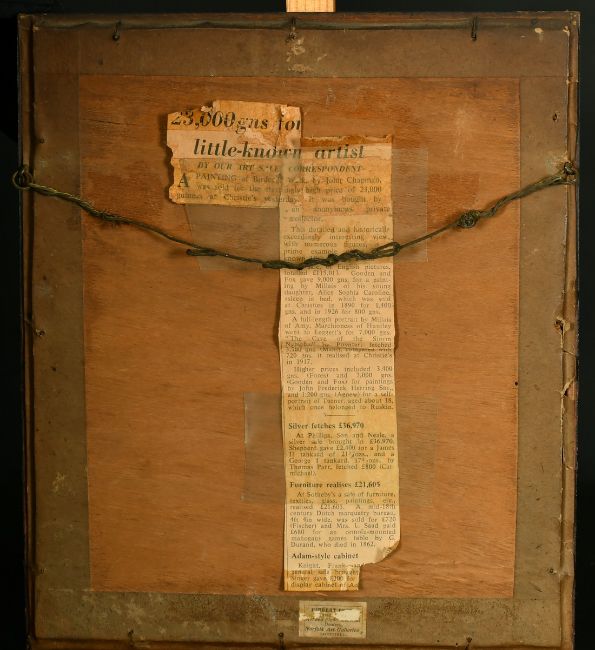 23,000gns for
little-known artist
BY OUR ART SALE CORRESPONDENT
A PAINTING of by John Chapman,
was sold for the high price of 23,000
guineas at Christie's yesterday. It was bought by
an anonymous private
collector.
This detailed and historically
exceedingly interesting view,
with numerous figures,
prime example
known
of English pictures,
totalled £115,011. Gooden and
Fox gave 9,000 gns. for a paint-
ing by Millais of his young
daughter, Alice Sophia Caroline,
asleep in bed, which was sold
at Christies in 1890 for 1,400
gns. and in 1926 for 800 gns.
A full-length portrait by Millais
of Amy, Marchioness of Huntley
went to Leggett's for 7,000 gns.
"The Cave of the Storm
Nymphs" by Poynter fetched
gns. compared with
720 gns. it realised at Christie's
in 1917.
Higher prices included 3,400
gns. (Fores) and 3,000 gns.
(Gooden and Fox) for paintings
by John Frederick Herring Snr.,
and 1,200 gns. (Agnew) for a self-
portrait of Turner, aged about 18,
which once belonged to Ruskin.
Silver fetches £36,970
At Phillips, Son and Neale, a
silver sale brought in £36,970.
Shepherd gave £2,400 for a James
II tankard of and a
George I tankard, by
Thomas Parr, fetched £800 (Car-
michael).
Furniture realises £21,605
At Sotheby's a sale of furniture,
textiles, glass, paintings, etc.,
realised £21,605. A mid-18th
century Dutch marquetry bureau,
4ft 4in wide, was sold for £720
(Fischer) and Mrs. L. Saad paid
£680 for an ormolu-mounted
mahogany games table by G.
Durand, who died in 1862.
Adam-style cabinet
Knight, Frank and
general sale brought
gave £200 for
display cabinet of
Norfolk Art Galleries